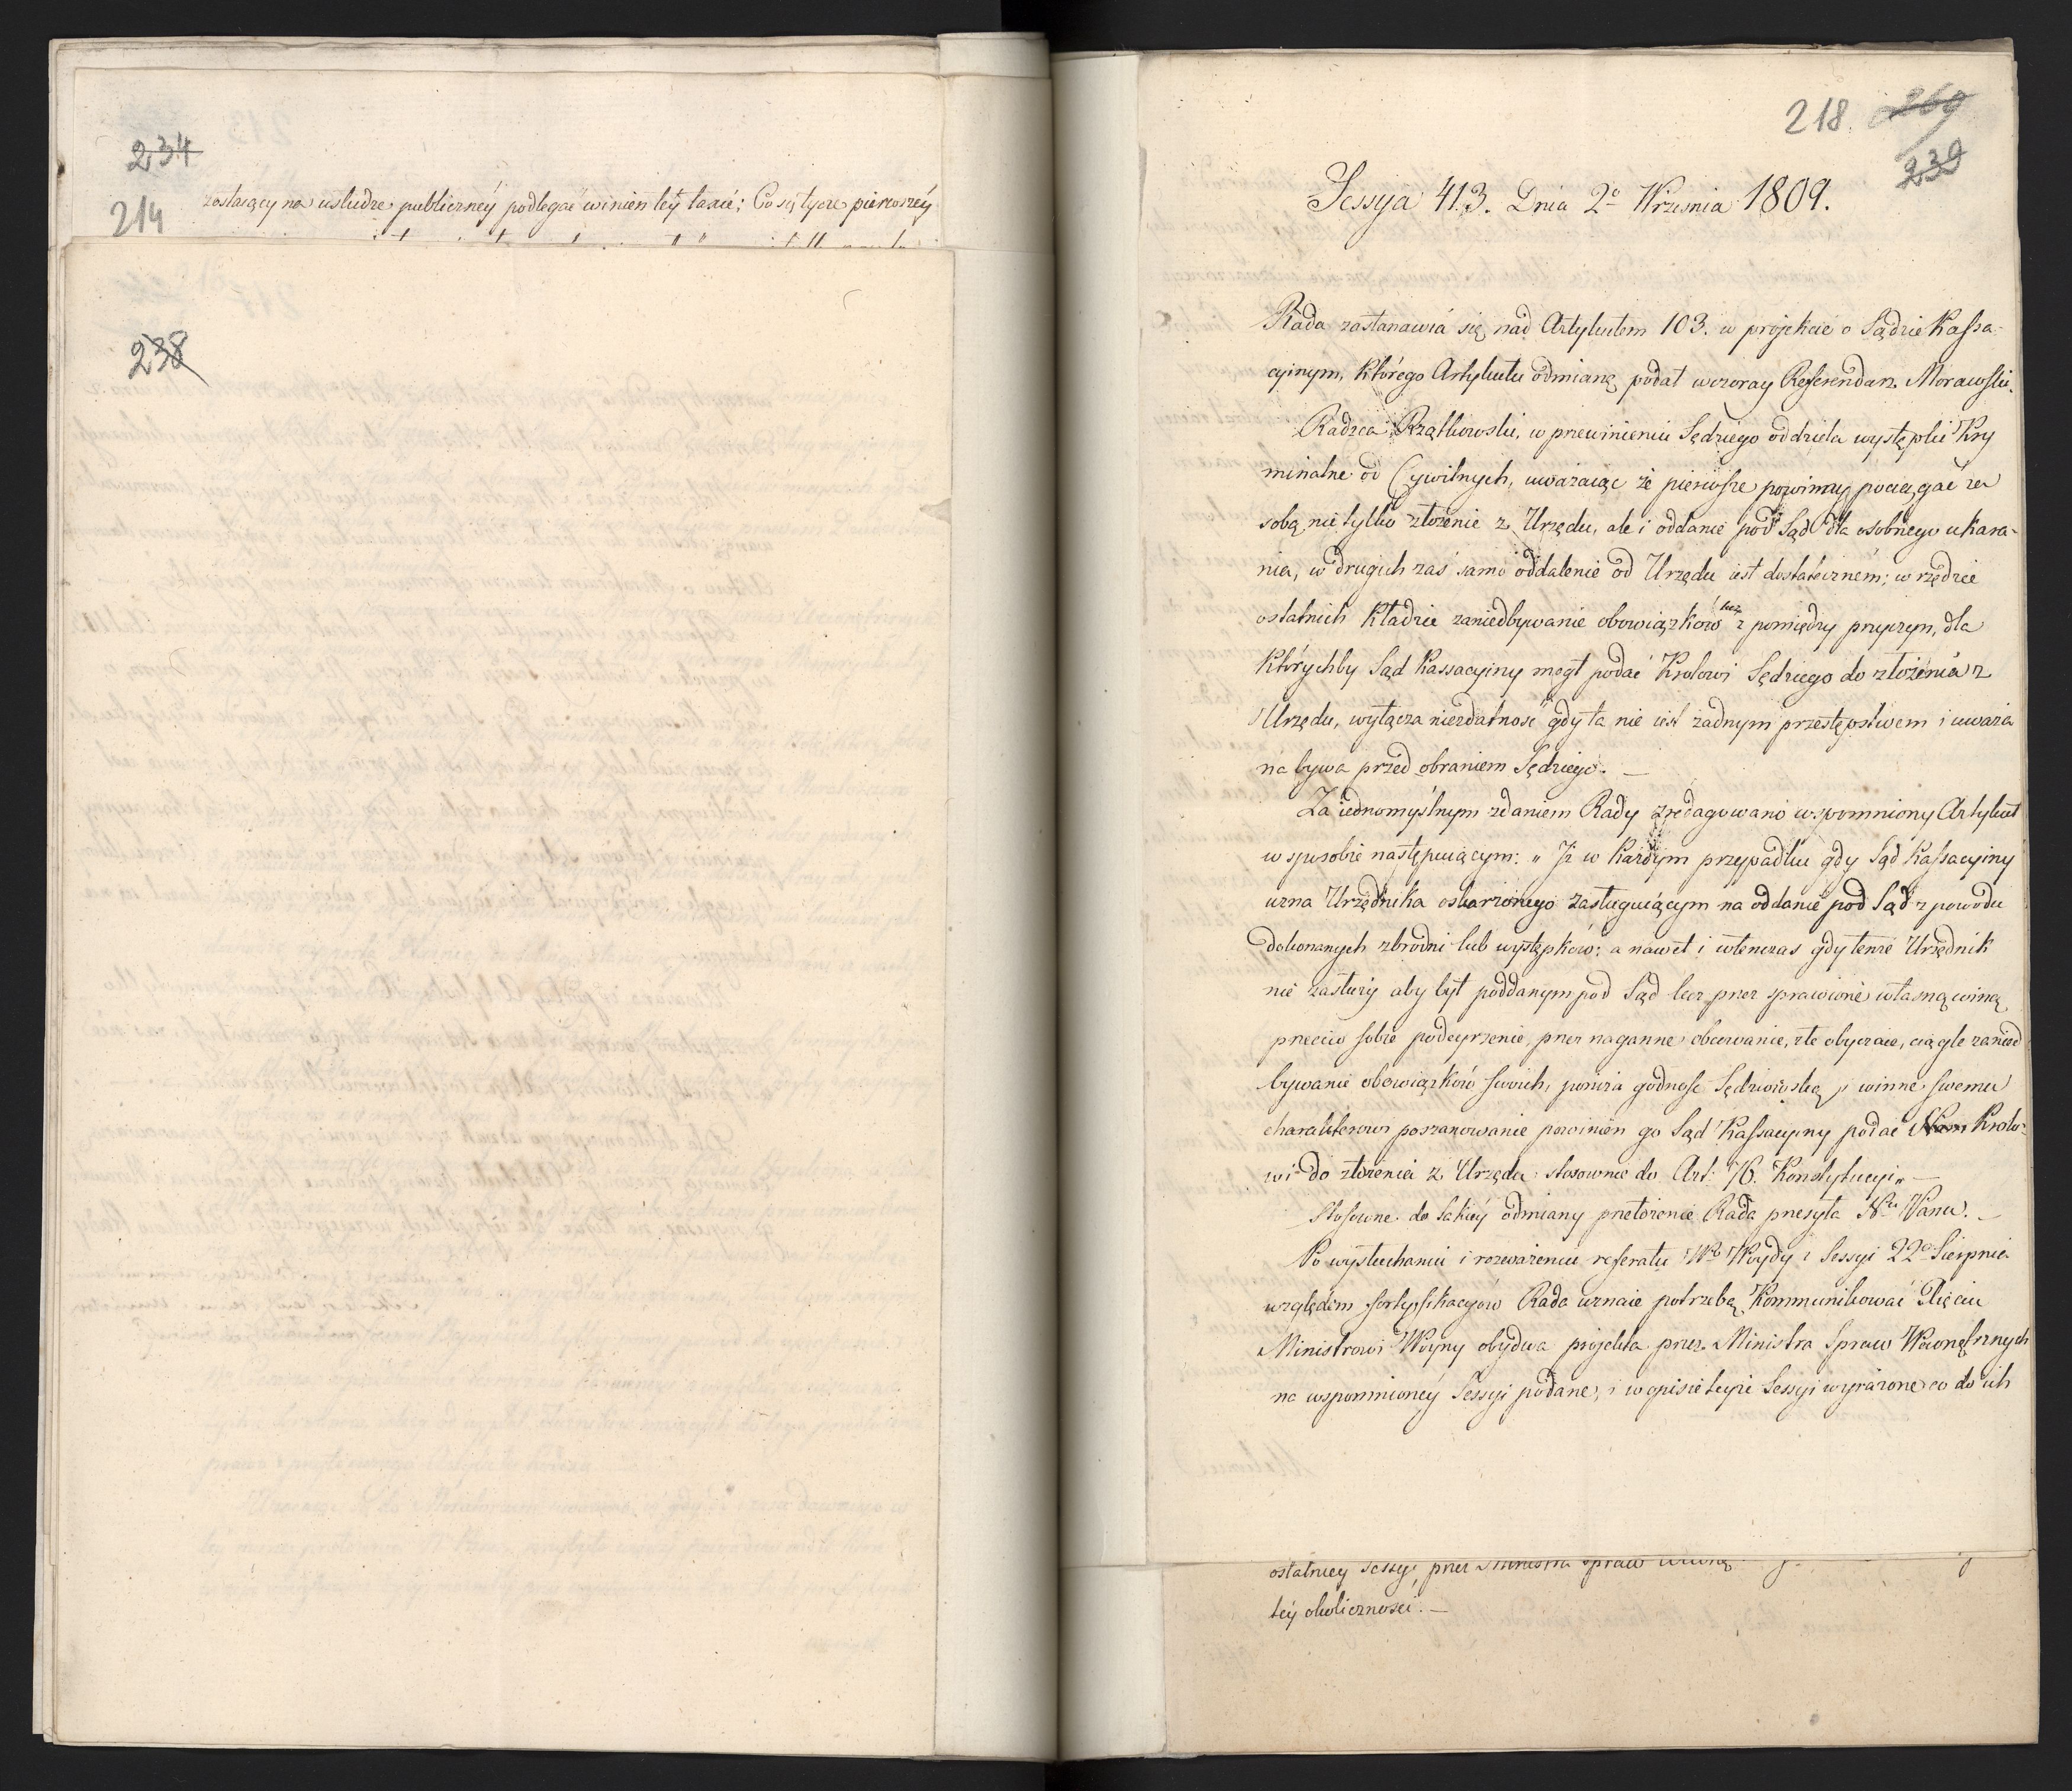 234
214
zostaiący na usłudze publiczney podlegać winien tey taxie; Co się tycze pierwszey
238
218. 260
239
Sessya 413. Dnia 2o Września 1809.
Rada zastanawia się nad Artykułem 103. w projekcie o Sądzie Kassa-
cyinym, którego Artykułu odmianę podał wczoray Referendarz Morawski.
Radzca Rzątkowski, w przewinieniu Sędziego oddziela występki Kry
minalne od Cywilnych, uważaiąc że pierwsze powinny pociągać za
sobą nie tylko złożenie z Urzędu, ale i oddanie pod Sąd dla osobnego ukara-
nia, w drugich zaś samo oddalenie od Urzędu iest dostatecznem; w rzędzie
ostatnich kładzie zaniedbywanie obowiązków z pomiędzy przyczyn, dla
którychby Sąd Kassacyiny mógł podać Królowi Sędziego do złożenia z
Urzędu, wyłącza niezdatność gdy ta nie iest żadnym przestępstwem i uważa
na bywa przed obraniem Sędziego. —
Za iednomyślnym zdaniem Rady zredagowano wspomniony Artykuł
w sposobie następuiącym: „ Iż w każdym przypadku gdy Sąd Kassacyiny
uzna Urzędnika oskarżonego zasługuiącym na oddanie pod Sąd z powodu
dokonanych zbrodni lub występków; a nawet i wtenczas gdy tenże Urzędnik
nie zasłuży aby był poddanym pod Sąd lecz przez sprawione własną winą
przeciw sobie podeyrzenie, przez naganne obcowanie, złe obyczaie, ciągle zanied
bywanie obowiązków swoich, poniża godność Sędziowską i winne swemu
charakterowi poszanowanie powinien go Sąd Kassacyiny podać Nam Królo-
wi do złożenia z Urzędu stosownie do Art: 76. Konstytucyi „ —
Stosowne do takiey odmiany przełożenie Rada przesyła Nmu Panu. —
Po wysłuchaniu i rozważeniu referatu Wo Woydy z Sessyi 22o Sierpnia
względem fortyfikacyów Rada uznaie potrzebę kommunikować Xięciu
Ministrowi Woyny obydwa projekta przez Ministra Spraw Wewnętrznych
na wspomnioney Sessyi podane, i w opisie teyże Sessyi wyrażone co do ich
ostatniey Sessyi, przez Ministra Spraw
tey okoliczności. —